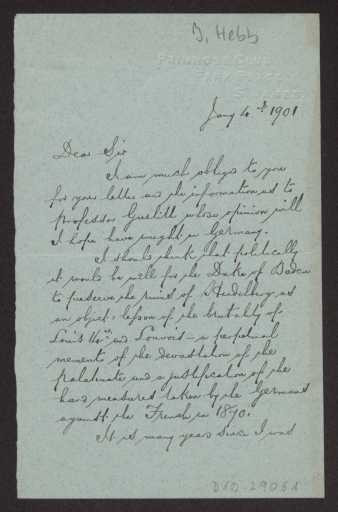 J. Hebb
PRIMROSE CLUB
PARK PLACE
ST JAMES'S
Jany 4th 1901
Dear Sir
I am much obliged to you
for your letter and the information as to
Professor whose opinion will
I hope have weight in Germany.
I should think that politically
it would be well for the Duke of Baden
to preserve the ruins of Heidelberg as
an object-lesson of the brutality of
Louis 14th and Louvois - a perpetual
memento of the devastation of the
palatinate and a justification of the
hard measures taken by the Germans
against the French in 1870.
It is many years since I was